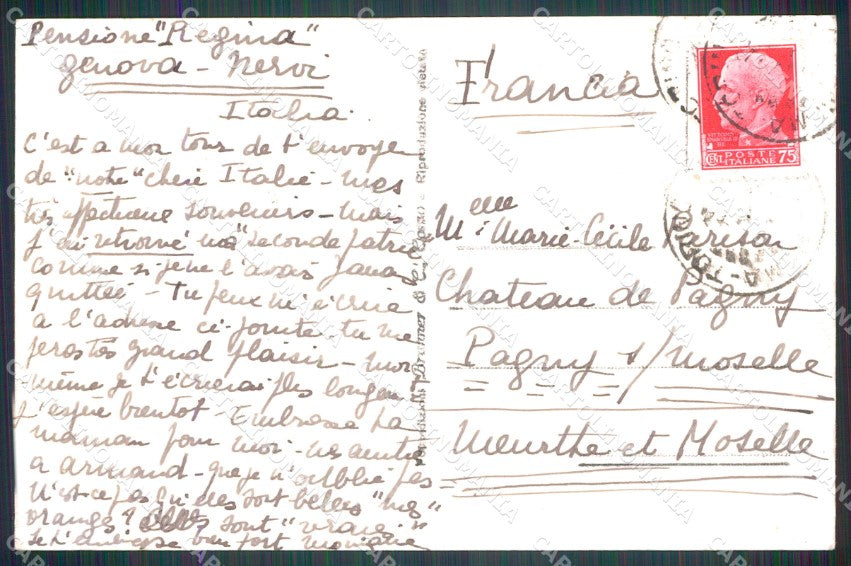 Pensione "Regina"
Genova - Nervi
Italia
C'est a mon tour de t'envoyer
de "notre" chère Italie - mes
très affectueux souvenirs - mais
j'ai retrouvé ma seconde patrie
comme si je ne l'avais jamais
quittée - Tu peux m'écrire
a l'adresse ci-jointe - tu me
feras très grand plaisir - moi
même je t'écrirai plus longuement
j'espère bientôt - Embrasse ta
maman pour moi - mes amitiés
a Armand - que je n'oublie pas
N'est-ce pas qu'elles sont belles "mes"
oranges? elles sont "vraies"
Je t'embrasse bien fort
Francia
Melle Marie-Cécile
Chateau de Pagny
Pagny s/Moselle
Meurthe et Moselle
POSTE
ITALIANE
CENT. 75
Riproduzione vietata
CARTOLINOMANIA